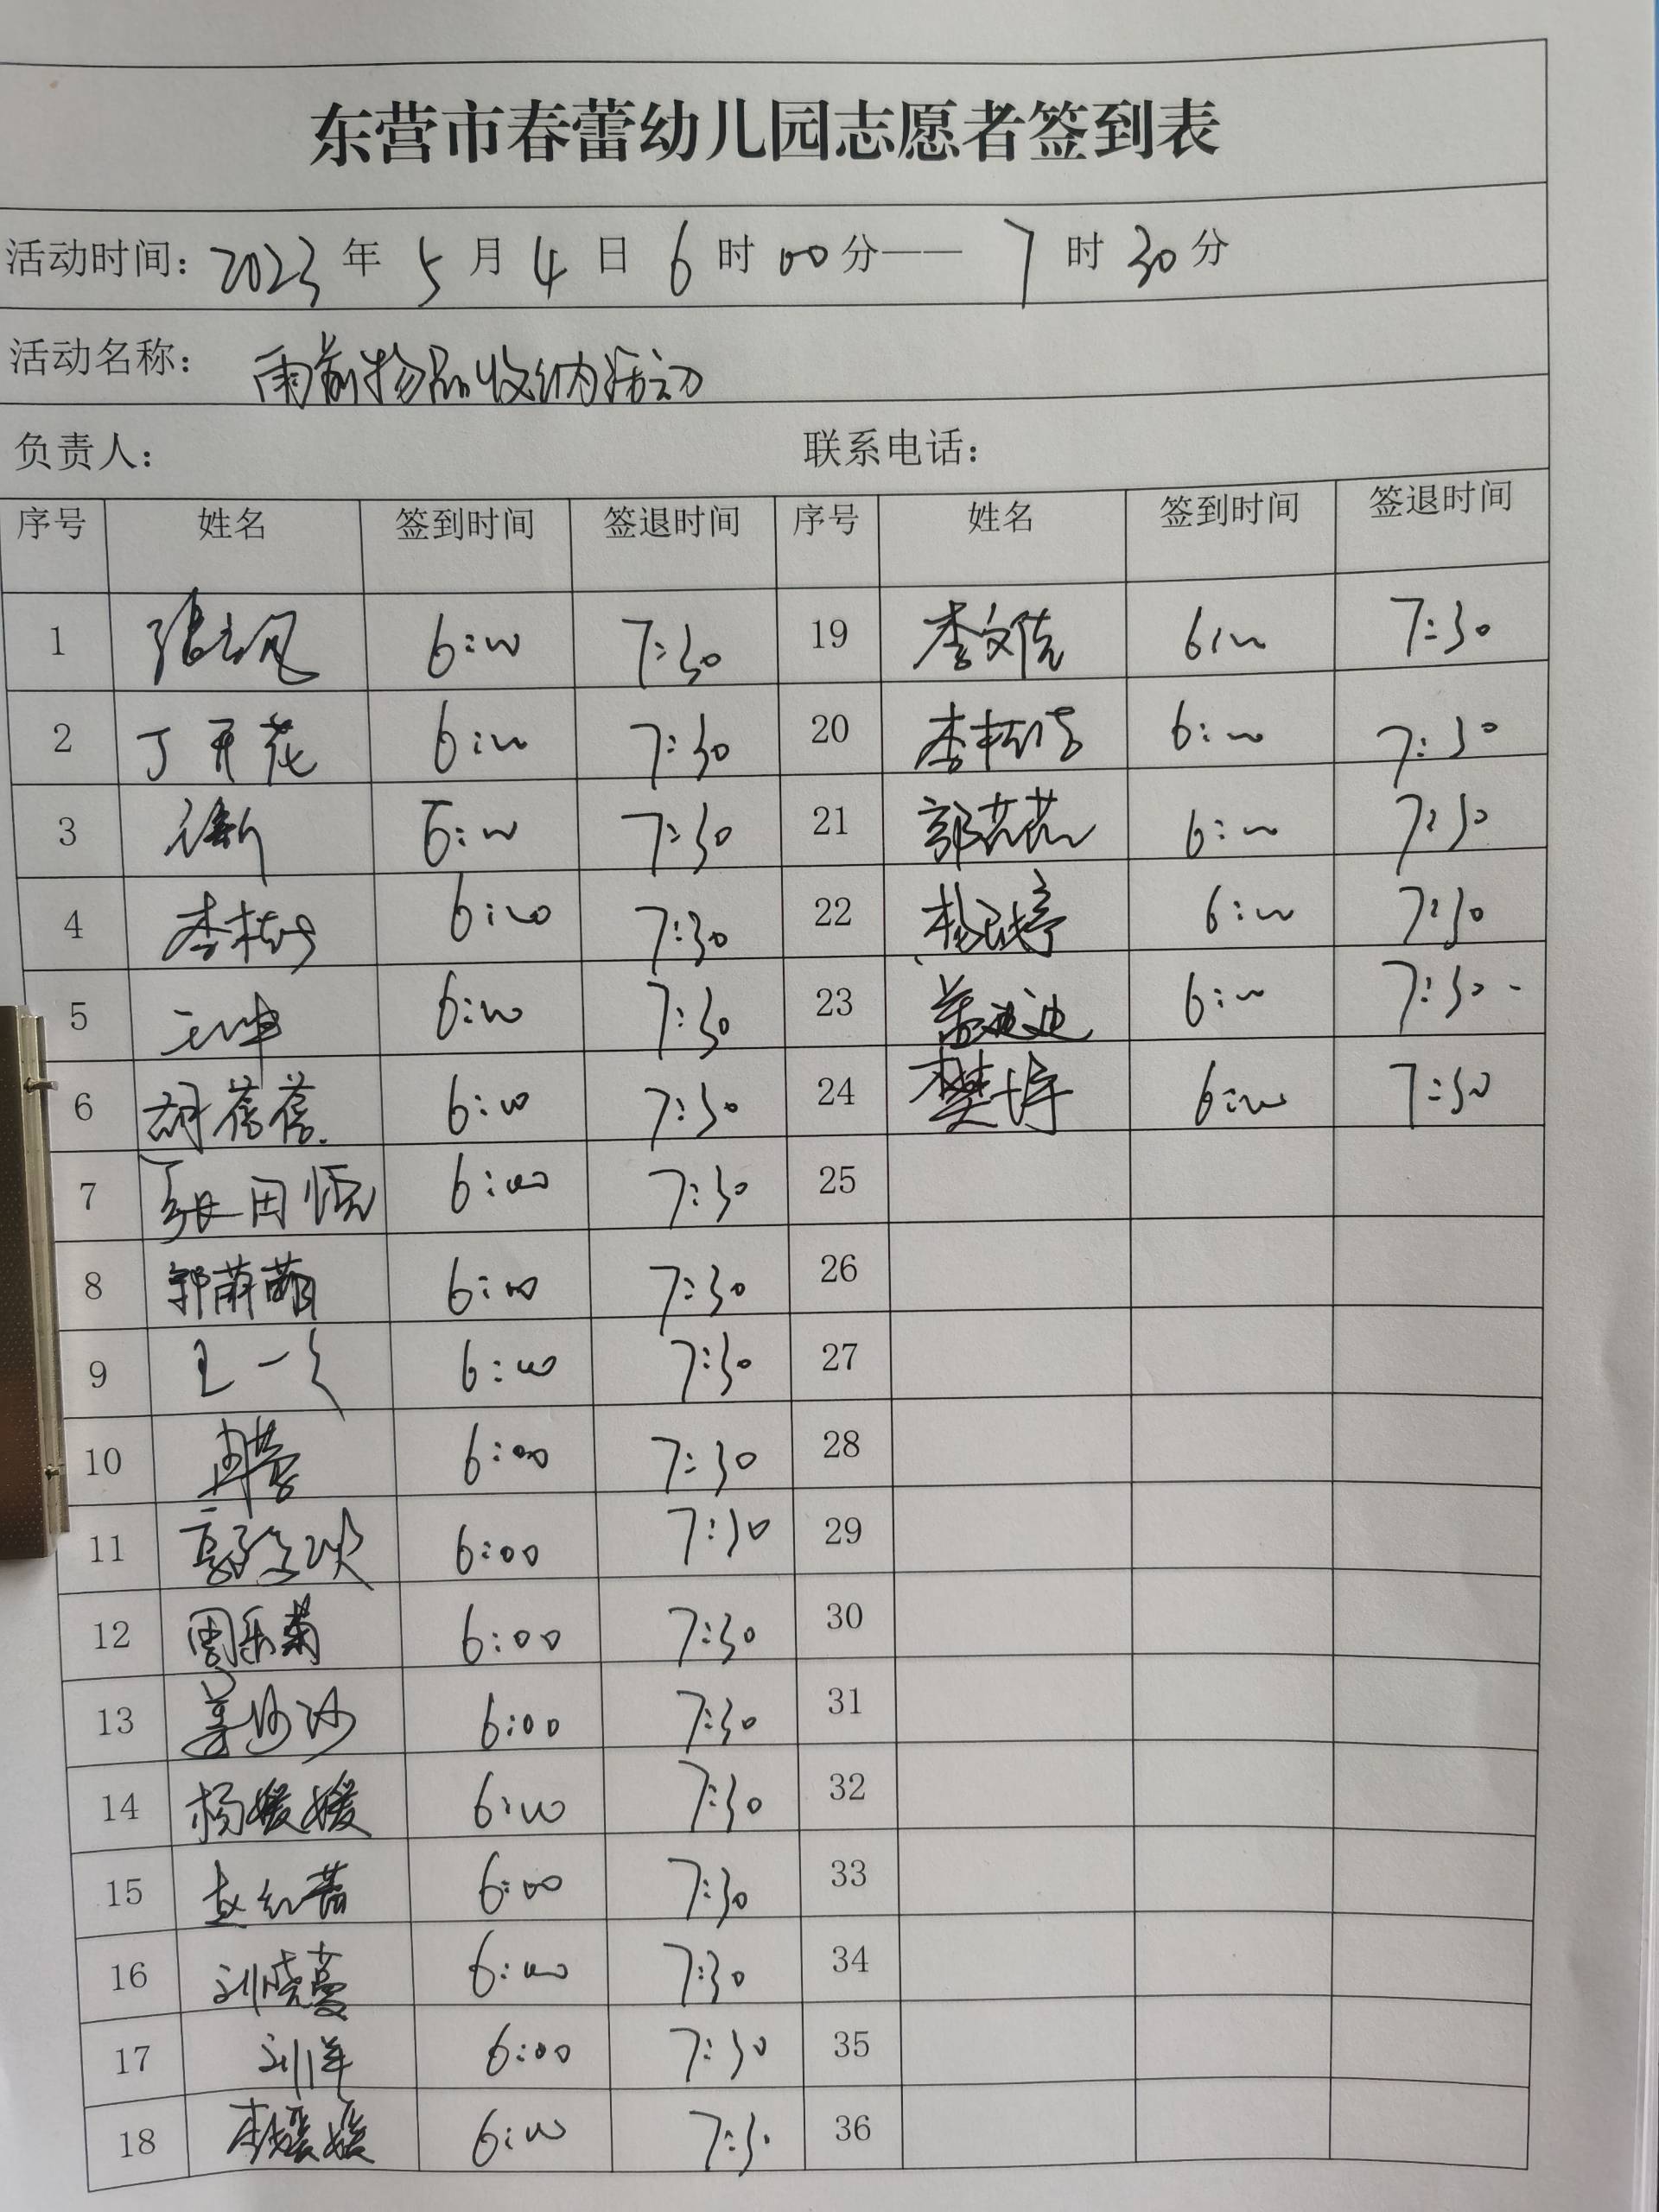 东营市春蕾幼儿园志愿者签到表
活动时间：2023 年 5 月 4 日 6 时 00 分—— 7 时 30 分
活动名称： 雨前物品收纳活动
负责人： 联系电话：
序号 姓名 签到时间 签退时间 序号 姓名 签到时间 签退时间
1 6:00 7:30 19 李文倩 6:00 7:30
2 丁开花 6:00 7:30 20 6:00 7:30
3 6:00 7:30 21 郭芸芸 6:00 7:30
4 6:00 7:30 22 6:00 7:30
5 王坤 6:00 7:30 23 董迪迪 6:00 7:30
6 胡蓓蓓 6:00 7:30 24 樊婷 6:00 7:30
7 张田恬 6:00 7:30 25
8 郭萌萌 6:00 7:30 26
9 王一 6:00 7:30 27
10 6:00 7:30 28
11 6:00 7:30 29
12 周乐菊 6:00 7:30 30
13 姜沙沙 6:00 7:30 31
14 杨媛媛 6:00 7:30 32
15 赵红蕾 6:00 7:30 33
16 刘晓蔓 6:00 7:30 34
17 刘洋 6:00 7:30 35
18 李媛媛 6:00 7:30 36